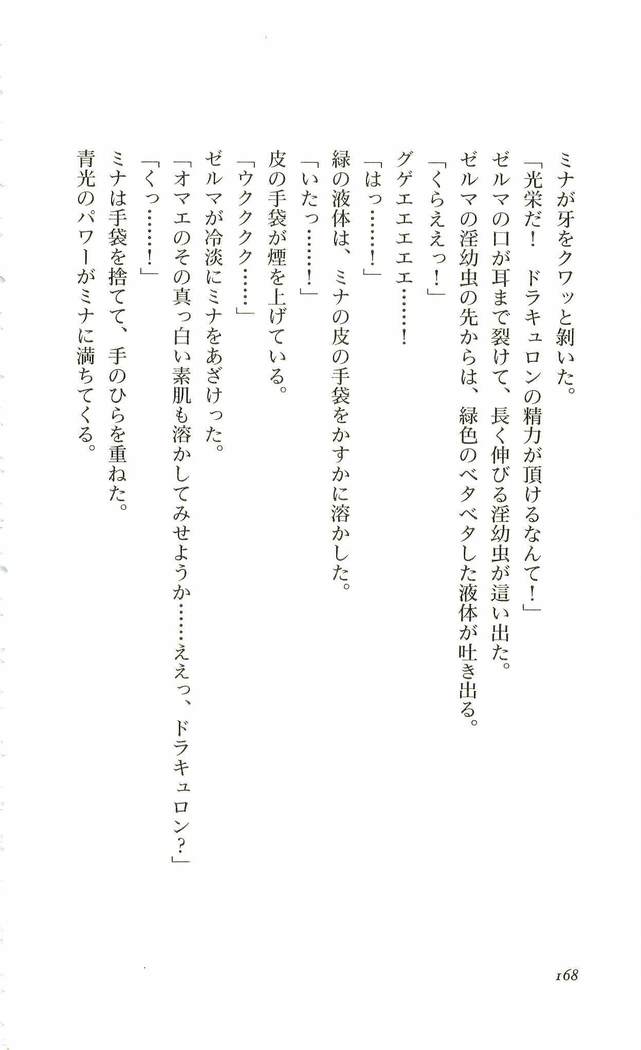 ミナが牙をクワッと剝いた。
「光栄だ！　ドラキュロンの精力が頂けるなんて！」
ゼルマの口が耳まで裂けて、長く伸びる淫幼虫が這い出た。
ゼルマの淫幼虫の先からは、緑色のベタベタした液体が吐き出る。
「くらええっ！」
グゲエエエエエ……！
「はっ……！」
緑の液体は、ミナの皮の手袋をかすかに溶かした。
「いたっ……！」
皮の手袋が煙を上げている。
「ウクククク……」
ゼルマが冷淡にミナをあざけった。
「オマエのその真っ白い素肌も溶かしてみせようか……ええっ、ドラキュロン？」
「くっ……！」
ミナは手袋を捨てて、手のひらを重ねた。
青光のパワーがミナに満ちてくる。
168